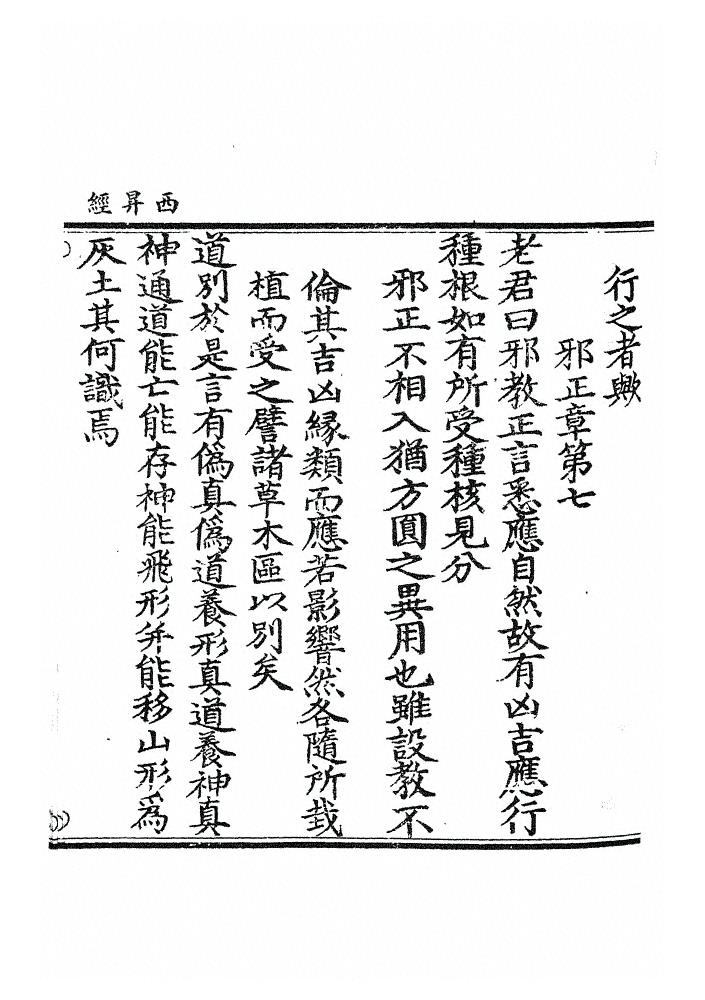 西昇經
行之者歟
邪正章第七
老君曰邪教正言悉應自然故有凶吉應行
種根如有所受種核見分
邪正不相入猶方圓之異用也雖設教不
倫其吉凶緣類而應若影響然各隨所㘽
植而受之譬諸草木區以別矣
道別於是言有偽真偽道養形真道養神真
神通道能亡能存神能飛形并能移山形為
灰土其何識焉